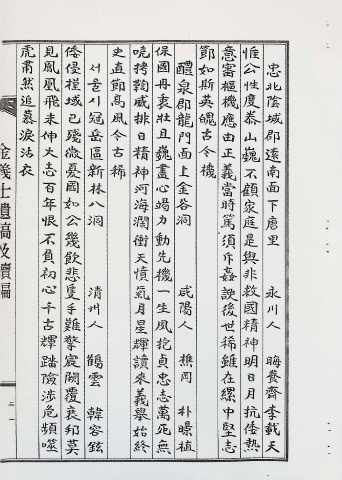 忠北陰城郡遠南面下唐里　永川人　晦養齋李載天
惟公性度泰山巍不顧家庭是與非救國精神明日月抗倭熱
意審樞機應由正義當時篤須斥姦諛後世稀雖在縲中堅志
節如斯英魄古今機
醴泉郡龍門面上金谷洞　咸陽人　樵岡　朴暻植
保國丹衷壯且巍盡心竭力動先機一生風抱貞忠志萬死無
嘵拷鞫威排日精神河海濶衝天憤氣月星輝讀來義擧始終
史直節高風今古稀
서울시冠岳區新林八洞　清州人　鶴雲　韓容鉉
倭侵槿域已殘微憂國如公幾飲悲隻手難擎宸闕覆衰邦莫
見鳳凰飛未伸大志百年恨不負初心千古輝踏險涉危頻噬
虎肅然追慕淚沾衣
金義士遺稿及續編